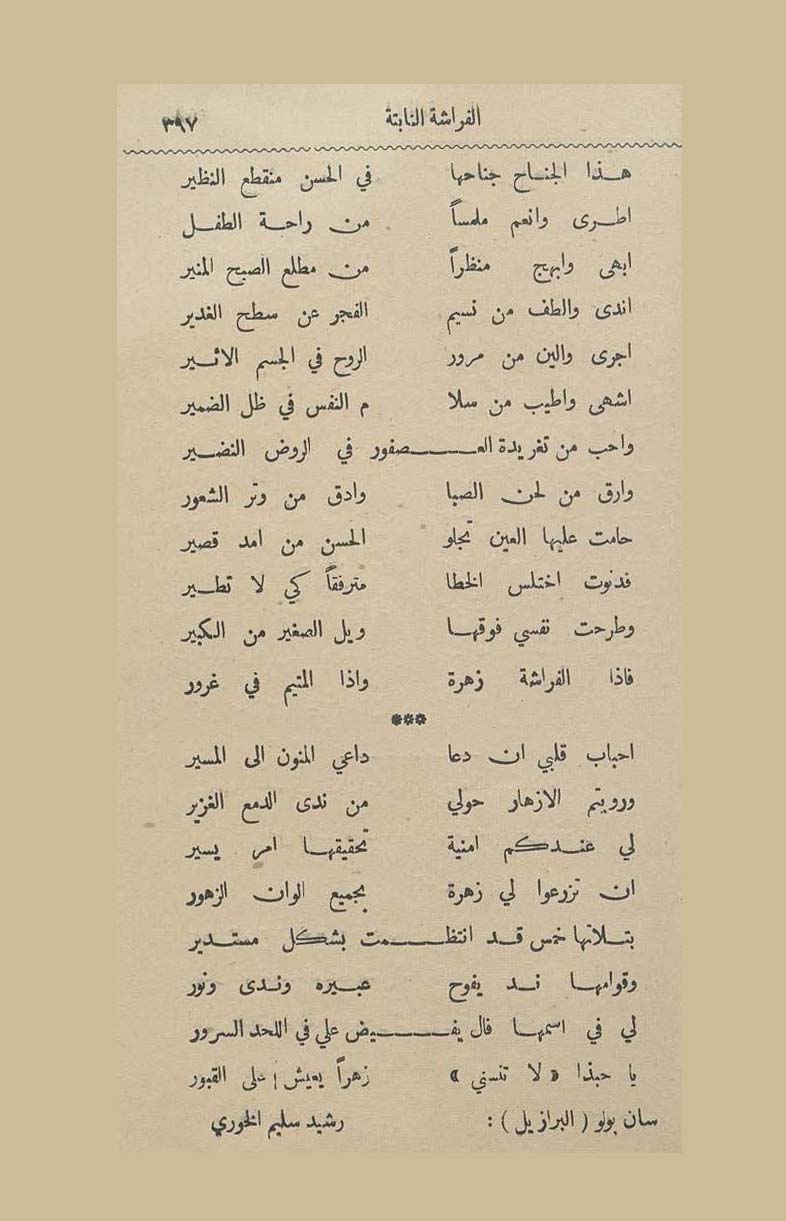 الفراشة النابتة ٣٩٧
هذا الجناح جناحها في الحسن منقطع النظير
اطرى وانعم ملمساً من راحة الطفل
ابهى وابهج منظراً من مطلع الصبح المنير
اندى والطف من نسيم الفجر عن سطح الغدير
اجرى والين من مرور الروح في الجسم الاثير
اشهى واطيب من سلا م النفس في ظل الضمير
واحب من تغريدة العصفور في الروض النضير
وارق من لحن الصبا وادق من وتر الشعور
حامت عليها العين تجلو الحسن من امد قصير
فدنوت اختلس الخطا مترفقاً كي لا تطير
وطرحت نفسي فوقها ويل الصغير من الكبير
فاذا الفراشة زهرة واذا المتيم في غرور
***
احباب قلبي ان دعا داعي المنون الى المسير
ورويتم الازهار حولي من ندى الدمع الغزير
لي عندكم امنية تحقيقها امر يسير
ان تزرعوا لي زهرة بجميع الوان الزهور
بتلاتها خمس قد انتظمت بشكل مستدير
وقوامها ند يفوح عبيره وندى ونور
لي في اسمها فال يفيض علي في اللحد السرور
يا حبذا « لا تنسني » زهراً يعيش على القبور
سان بولو ( البرازيل ) : رشيد سليم الخوري